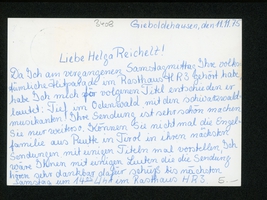 8408 Gieboldehausen, den 11.11.75
Liebe Helga Reichelt!
Da Ich am vergangenen Samstagmittag Ihre volks-
tümliche Hitparade im Rasthaus HR3 gehört habe,
habe Ich mich für folgenen Titel entschieden er
lautet: Tief im Odenwald mit den schwarzwald-
musikanten. Ihre Sendung ist sehr schön machen
Sie nur weiter. Können Sie nicht mal die Engel-
familie aus Reutte in Tirol in ihren nächsten
Sendungen mit einigen Titeln mal vorstellen, Ich
wäre Ihnen mit einigen Leuten die die Sendung
hören sehr dankbar dafür bis nächsten
Samstag um 14 im Rasthaus HR3 5.-